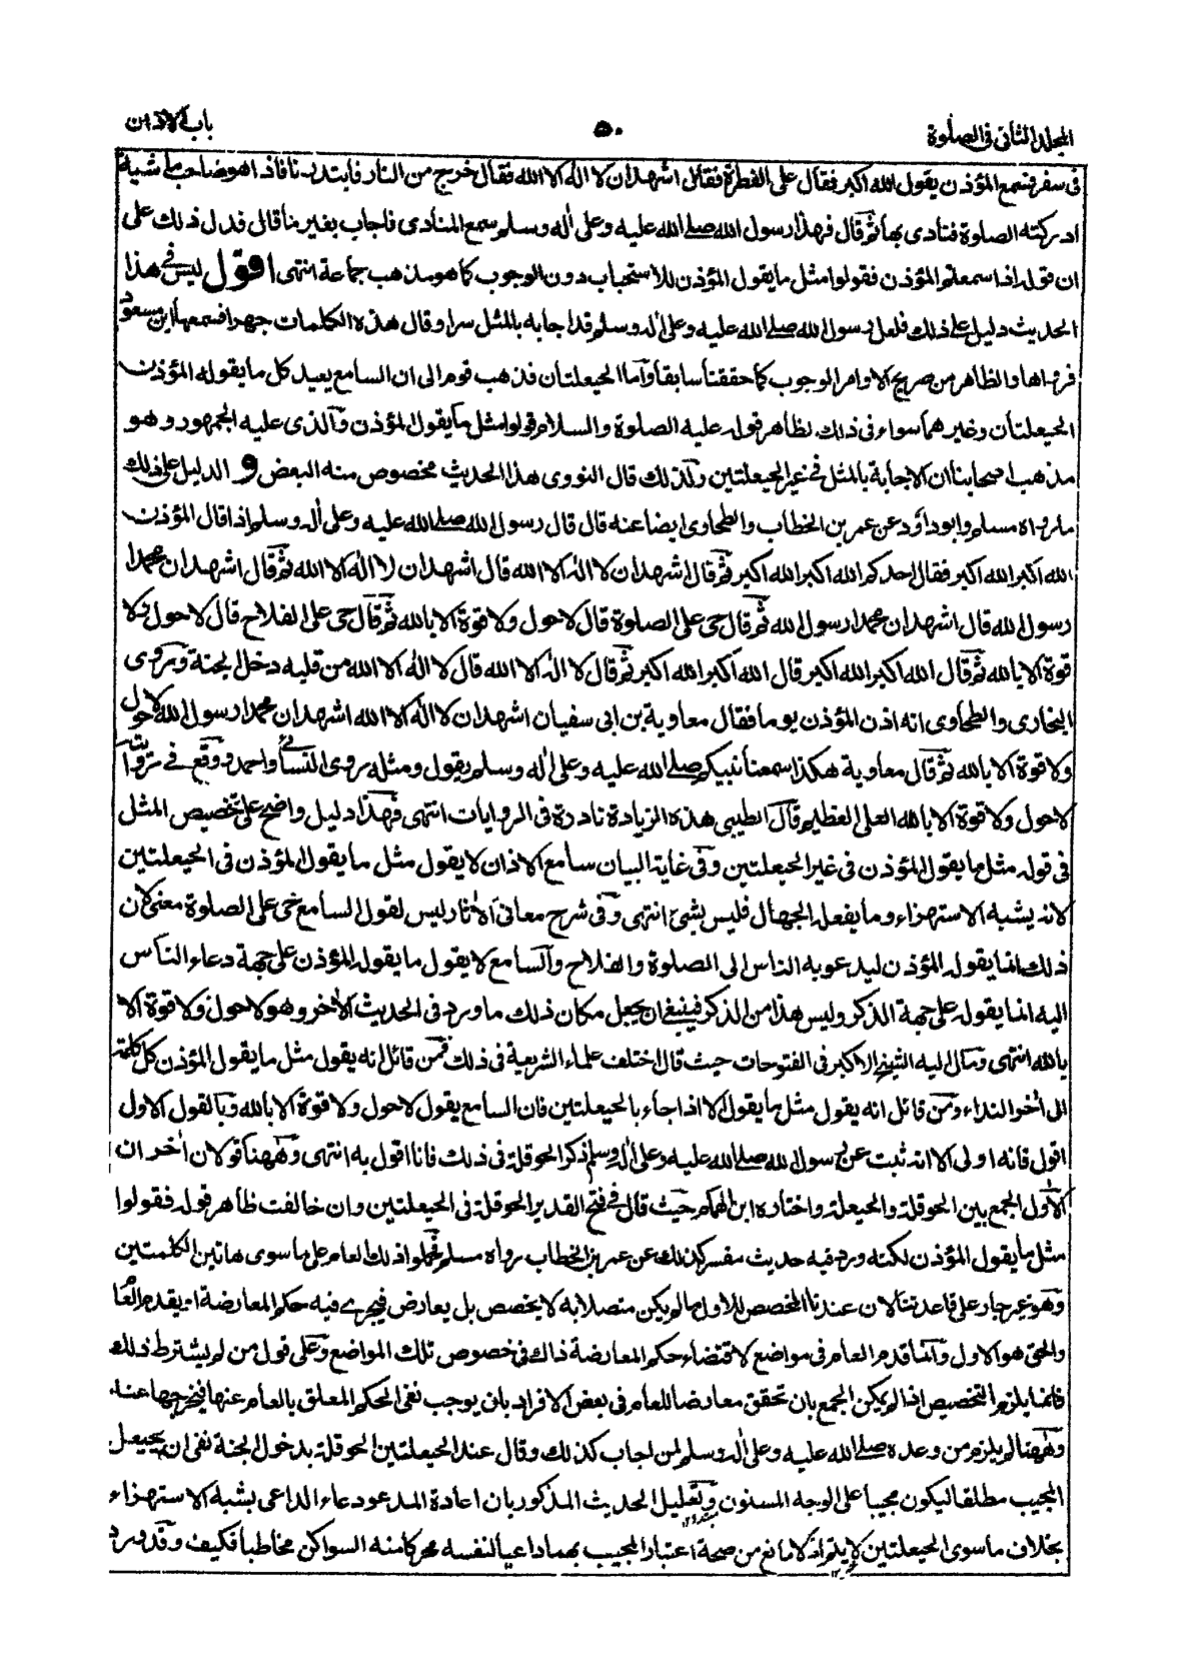 المجلد الثانى فى الصلوة
٥٠
باب الاذان
فى سفر فسمع المؤذن يقول الله اكبر فقال على الفطرة فقال اشهد ان لا اله الا الله فقال خرج من النار فابتدرنا فاذا هو صاحب ماشية
ادركته الصلوة فنادى بها ثم قال فهذا رسول الله صلے الله عليه وعلى أله وسلم سمع المنادى فاجاب بغير ما قال فدل ذلك على
ان قوله اذا سمعتم المؤذن فقولوا مثل ما يقول المؤذن للاستحباب دون الوجوب كما هو مذهب جماعة انتهى اقول ليس فى هذا
الحديث دليل على ذلك فلعل رسول الله صلے الله عليه وعلى أله وسلم قد اجابه بالمثل سرا وقال هذه الكلمات جهرا فسمعها ابن مسعود
فرواها والظاهر من صريح الاوامر الوجوب كما حققنا سابقا وأما الحيعلتان فذهب قوم الى ان السامع يعيد كل ما يقوله المؤذن
الحيعلتان وغيرهما سواء فى ذلك لظاهر قوله عليه الصلوة والسلام قولوا مثل ما يقول المؤذن والذى عليه الجمهور وهو
مذهب اصحابنا ان الاجابة بالمثل فى غير الحيعلتين ولذلك قال النووى هذا الحديث مخصوص منه البعض و الدليل على ذلك
ما رواه مسلم وابو داؤد عن عمر بن الخطاب والطحاوى ايضا عنه قال قال رسول الله صلے الله عليه وعلى أله وسلم اذا قال المؤذن
الله اكبر الله اكبر فقال احدكم الله اكبر الله اكبر ثم قال اشهد ان لا اله الا الله قال اشهد ان لا اله الا الله ثم قال اشهد ان محمدا
رسول الله قال اشهد ان محمدا رسول الله ثم قال حى على الصلوة قال لا حول ولا قوة الا بالله ثم قال حى على الفلاح قال لا حول ولا
قوة الا بالله ثم قال الله اكبر الله اكبر قال الله اكبر الله اكبر ثم قال لا اله الا الله قال لا اله الا الله من قلبه دخل الجنة وروى
البخارى والطحاوى انه اذن المؤذن يوما فقال معاوية بن ابى سفيان اشهد ان لا اله الا الله اشهد ان محمدا رسول الله لا حول
ولا قوة الا بالله ثم قال معاوية هكذا سمعنا نبيكم صلے الله عليه وعلى أله وسلم يقول ومثله روى النسائى واحمد ووقع فى رواية
لا حول ولا قوة الا بالله العلى العظيم قال الطيبى هذه الزيادة نادرة فى الروايات انتهى فهذا دليل واضح على تخصيص المثل
فى قوله مثل ما يقول المؤذن فى غير الحيعلتين وفى غاية البيان سامع الاذان لا يقول مثل ما يقول المؤذن فى الحيعلتين
لانه يشبه الاستهزاء وما يفعله الجهال فليس بشئ انتهى وفى شرح معانى الأثار ليس لقول السامع حى على الصلوة معنى لان
ذلك انما يقوله المؤذن ليدعو به الناس الى الصلوة والفلاح والسامع لا يقول ما يقوله المؤذن على جهة دعاء الناس
اليه انما يقوله على جهة الذكر وليس هذا من الذكر فينبغى ان يجعل مكان ذلك ما ورد فى الحديث الأخر وهو لا حول ولا قوة الا
بالله انتهى ومال اليه الشيخ الاكبر فى الفتوحات حيث قال اختلف علماء الشريعة فى ذلك فمن قائل انه يقول مثل ما يقول المؤذن كل كلمة
الى أخر النداء ومن قائل انه يقول مثل ما يقول الا اذا جاء بالحيعلتين فان السامع يقول لا حول ولا قوة الا بالله وبالقول الاول
اقول فانه اولى الا انه ثبت عن رسول الله صلے الله عليه وعلى أله وسلم ذكر الحوقلة فى ذلك فانا اقول به انتهى وههنا قولان أخران
الأول الجمع بين الحوقلة والحيعلة واختاره ابن الهمام حيث قال فى فتح القدير الحوقلة فى الحيعلتين وان خالفت ظاهر قوله فقولوا
مثل ما يقول المؤذن لكنه ورد فيه حديث مفسر كذلك عن عمر بن الخطاب رواه مسلم فحملوا ذلك العام على ما سوى هاتين الكلمتين
وهو غير جار على قاعدتنا لان عندنا المخصص للاول ما لم يكن متصلا به لا يخصص بل يعارض فيجرے فيه حكم المعارضة او يقدم العام
والحق هو الاول وانما قدم العام فى مواضع لاقتضاء حكم المعارضة ذاك فى خصوص تلك المواضع وعلى قول من لم يشترط ذلك
فانما يلزم التخصيص اذا لم يكن الجمع بان تحقق معارضا للعام فى بعض الافراد بان يوجب نفى الحكم المعلق بالعام عنها فيخرجها عنه
وههنا لم يلزم من وعده صلے الله عليه وعلى أله وسلم لمن اجاب كذلك وقال عند الحيعلتين الحوقلة بدخول الجنة نفى ان يحيعل
المجيب مطلقا ليكون مجيبا على الوجه المسنون وتعليل الحديث المذكور بان اعادة المدعو دعاء الداعى يشبه الاستهزاء
بخلاف ما سوى الحيعلتين لا يتم اذ لا مانع من صحة اعتبار المجيب بهما داعيا لنفسه محركا منه السواكن مخاطبا فكيف وقد ورد